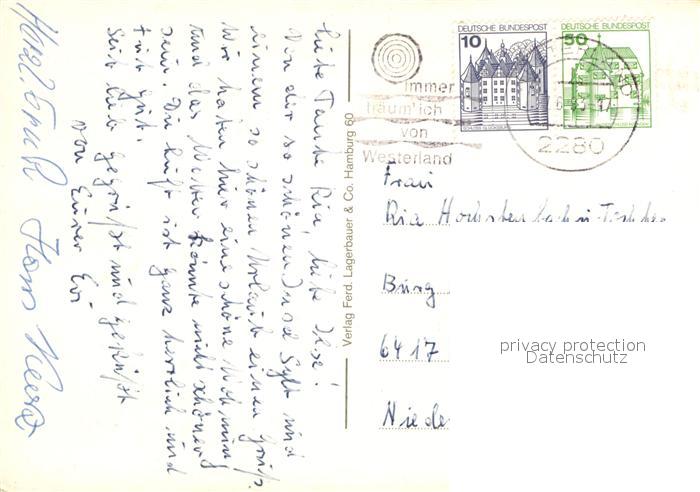 Liebe Tante Ria, liebe Ilse!
Von der so schönen Insel Sylt und
einem so schönen Urlaub einen Gruß.
Wir haben hier eine schöne Wohnung
und das Wetter könnte nicht schöner
sein. Die Luft ist ganz herrlich und
tut gut.
Seid lieb gegrüßt und geküßt
von Eurer Evi
Hans
Verlag Ferd. Lagerbauer & Co. Hamburg 60
immer
träum' ich
von
Westerland
DEUTSCHE BUNDESPOST
10
SCHLOSS GLÜCKSBURG
DEUTSCHE BUNDESPOST
50
2280
Frau
Ria
Burg
6417
Niede
privacy protection
Datenschutz